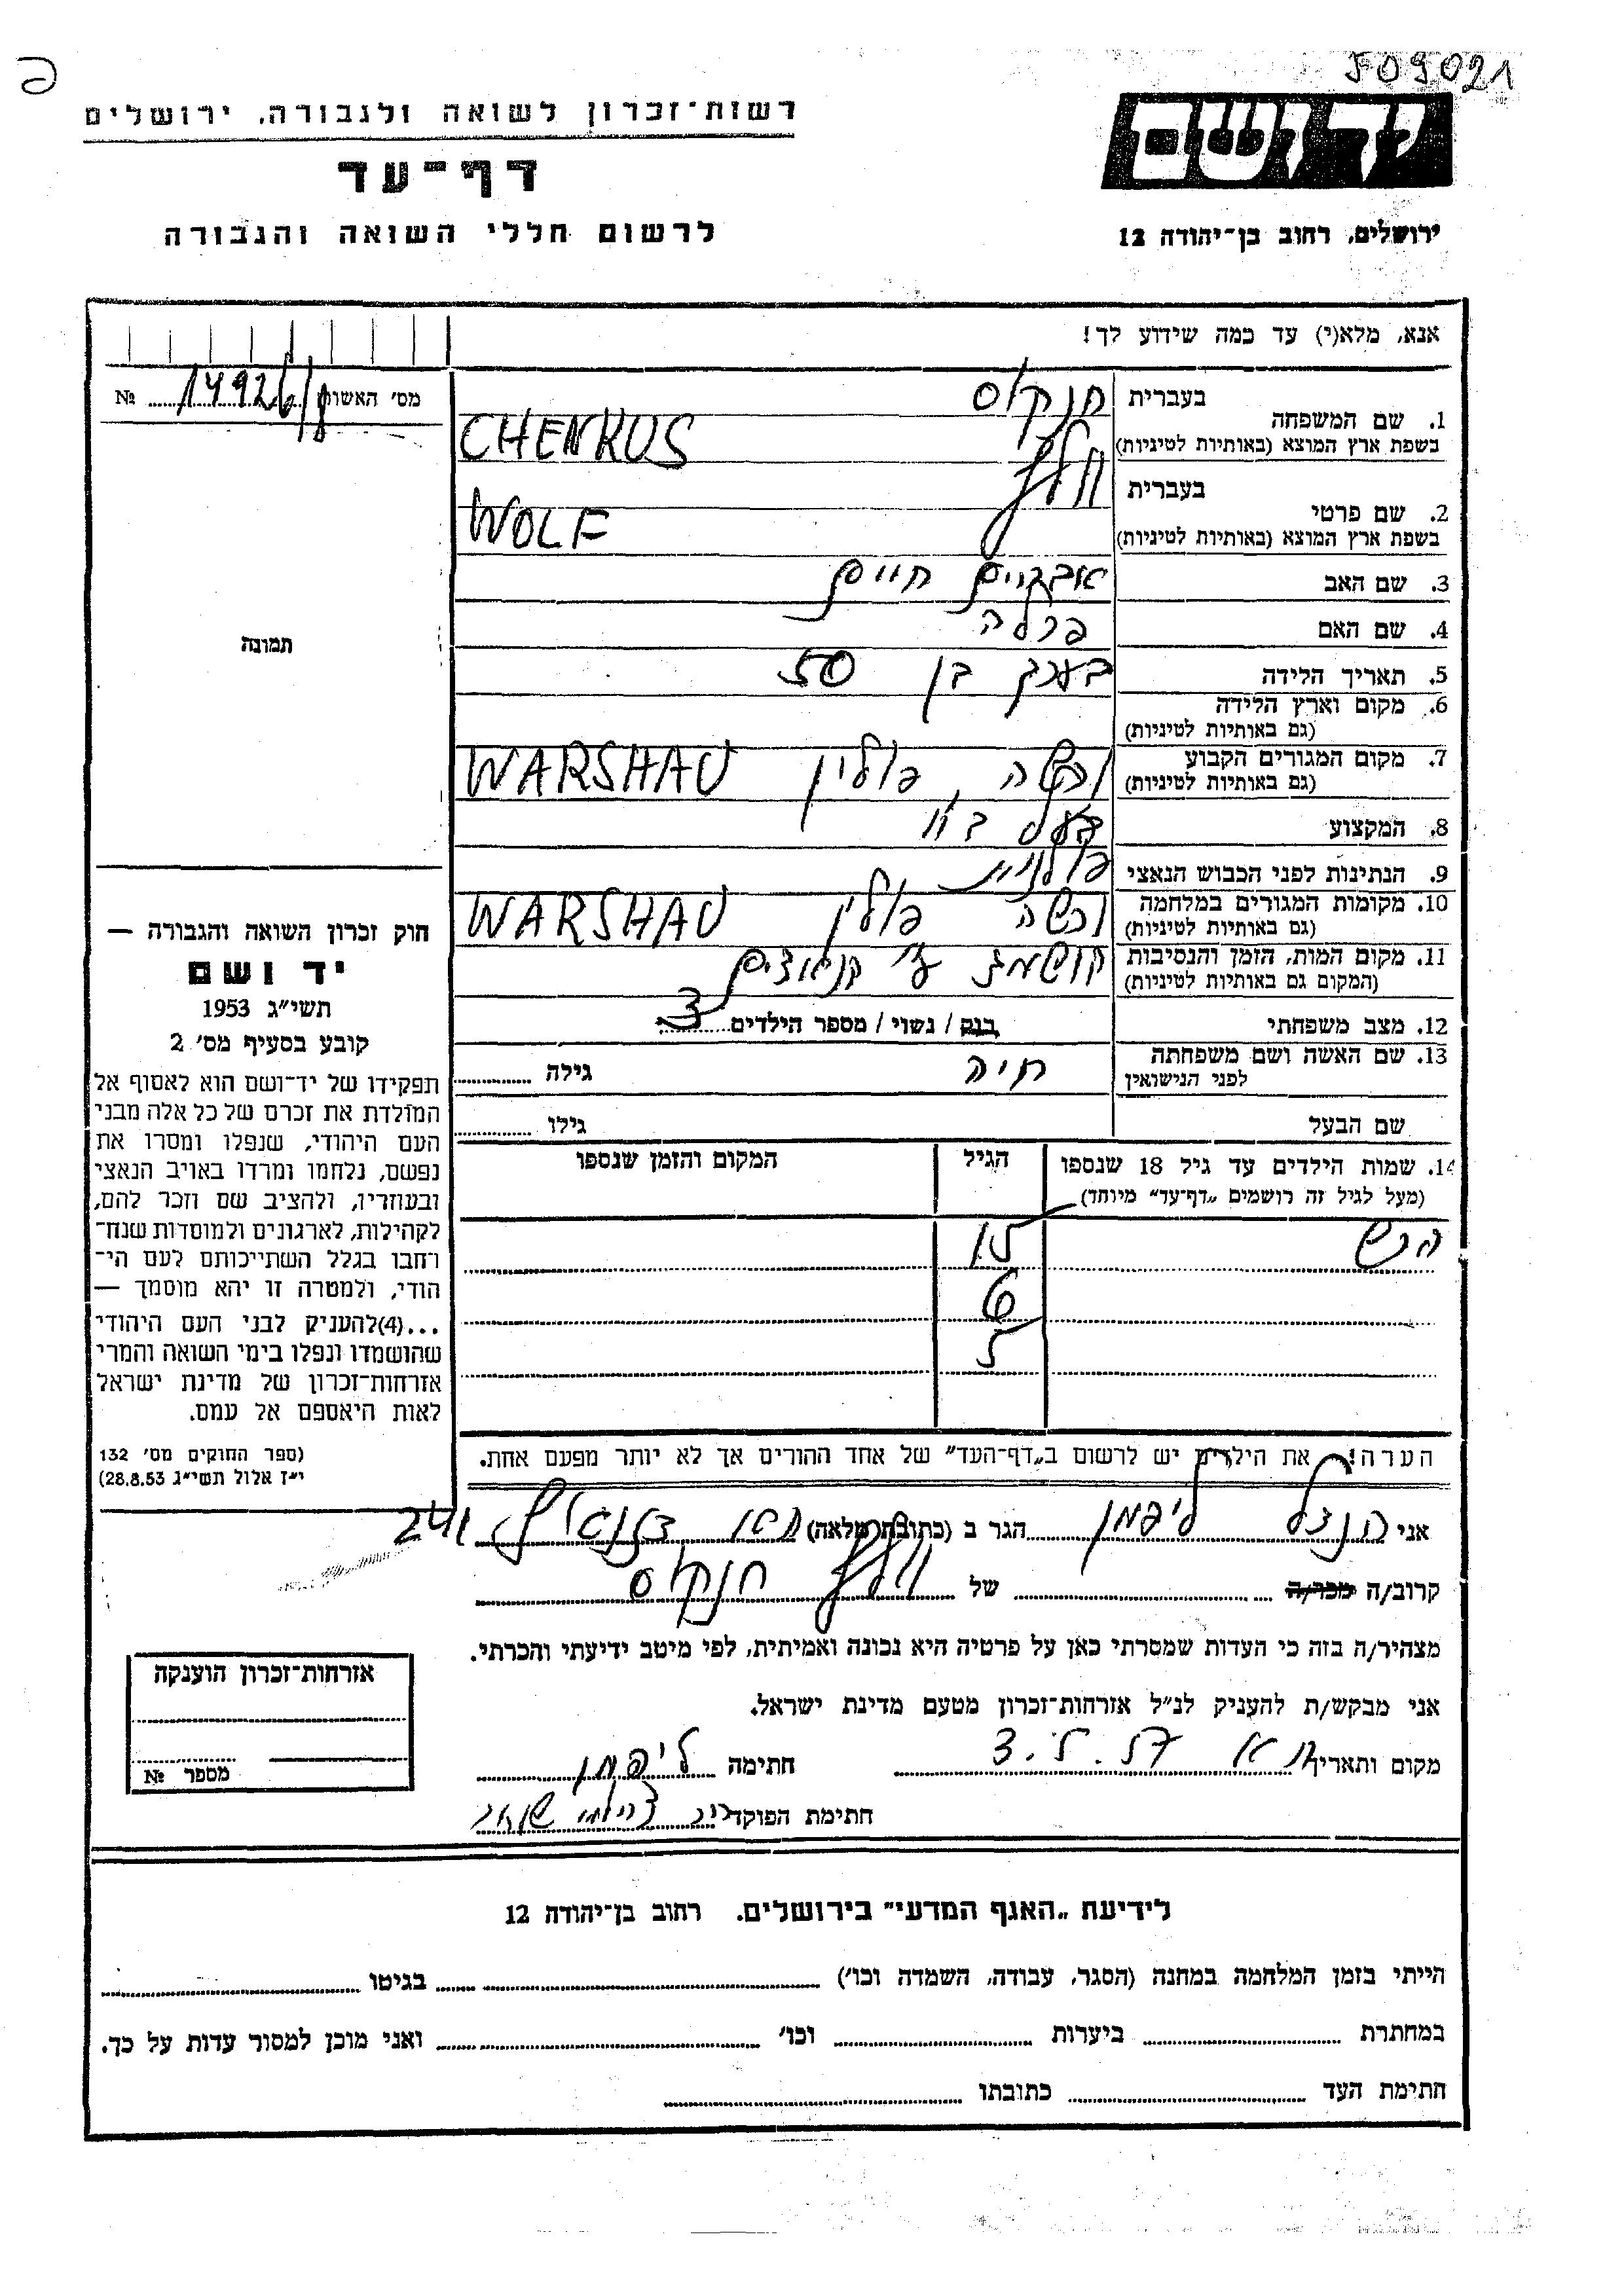 509021
רשות־זכרון לשואה ולגבורה, ירושלים
דף־עד
לרשום חללי השואה והגבורה
ירושלים, רחוב בן־יהודה 12
אנא, מלא(י) עד כמה שידוע לך!
מס' האשור 14926/8 №
1. שם המשפחה
בעברית חנקוס
בשפת ארץ המוצא (באותיות לטיניות) CHENKUS
2. שם פרטי
בעברית וולף
בשפת ארץ המוצא (באותיות לטיניות) WOLF
3. שם האב אברהם חיים
4. שם האם פרלה
5. תאריך הלידה בערך בן 50
6. מקום וארץ הלידה
(גם באותיות לטיניות)
7. מקום המגורים הקבוע ורשה פולין WARSHAU
(גם באותיות לטיניות)
8. המקצוע בעל
9. הנתינות לפני הכבוש הנאצי פולנית
10. מקומות המגורים במלחמה ורשה פולין WARSHAU
(גם באותיות לטיניות)
11. מקום המות, הזמן והנסיבות
(המקום גם באותיות לטיניות)
12. מצב משפחתי רוק / נשוי / מספר הילדים 3
13. שם האשה ושם משפחתה חיה גילה
לפני הנישואין
שם הבעל גילו
14. שמות הילדים עד גיל 18 שנספו הגיל המקום והזמן שנספו
(מעל לגיל זה רושמים „דף־עד” מיוחד)
הרש 15
6
5
הערה! את הילדים יש לרשום ב„דף־העד” של אחד ההורים אך לא יותר מפעם אחת.
תמונה
חוק זכרון השואה והגבורה —
יד ושם
תשי"ג 1953
קובע בסעיף מס' 2
תפקידו של יד־ושם הוא לאסוף אל
המולדת את זכרם של כל אלה מבני
העם היהודי, שנפלו ומסרו את
נפשם, נלחמו ומרדו באויב הנאצי
ובעוזריו, ולהציב שם וזכר להם,
לקהילות, לארגונים ולמוסדות שנח־
רחבו בגלל השתייכותם לעם הי־
הודי, ולמטרה זו יהא מוסמך —
...(4)להעניק לבני העם היהודי
שהושמדו ונפלו בימי השואה והמרי
אזרחות־זכרון של מדינת ישראל
לאות היאספם אל עמם.
(ספר החוקים מס' 132
י"ז אלול תשי"ג 28.8.53)
אני הנדל ליפמן הגר ב (כתובת מלאה) 241
קרוב/ה מכר/ה של וולף חנקוס
מצהיר/ה בזה כי העדות שמסרתי כאן על פרטיה היא נכונה ואמיתית, לפי מיטב ידיעתי והכרתי.
אני מבקש/ת להעניק לנ"ל אזרחות־זכרון מטעם מדינת ישראל.
מקום ותאריך חתימה ליפמן
חתימת הפוקד
אזרחות־זכרון הוענקה
מספר №
לידיעת „האגף המדעי” בירושלים. רחוב בן־יהודה 12
הייתי בזמן המלחמה במחנה (הסגר, עבודה, השמדה וכו') בגיטו
במחתרת ביערות וכו' ואני מוכן למסור עדות על כך.
חתימת העד כתובתו